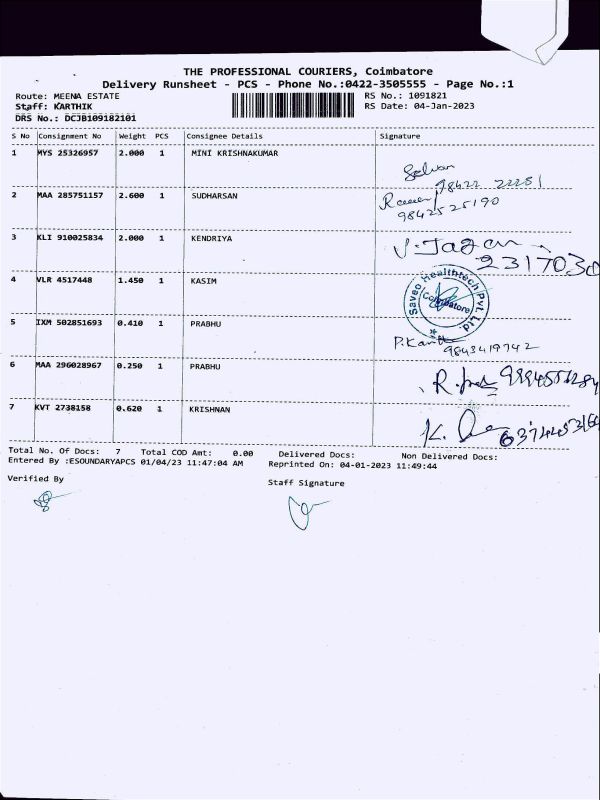 THE PROFESSIONAL COURIERS, Coimbatore
Delivery Runsheet - PCS - Phone No.:0422-3505555 - Page No.:1
Route: MEENA ESTATE
RS No.: 1091821
Staff: KARTHIK
RS Date: 04-Jan-2023
DRS No.: DCJB109182101
S No Consignment No Weight PCS Consignee Details Signature
1 MYS 25326957 2.000 1 MINI KRISHNAKUMAR
Selvan
98422 22251
2 MAA 285751157 2.600 1 SUDHARSAN
9842525190
3 KLI 910025834 2.000 1 KENDRIYA
J. Jagan
2317030
4 VLR 4517448 1.450 1 KASIM
Saveo Healthtech Pvt. Ltd.
Coimbatore
5 IXM 502851693 0.410 1 PRABHU
9843419742
6 MAA 296028967 0.250 1 PRABHU
7 KVT 2738158 0.620 1 KRISHNAN
Total No. Of Docs: 7 Total COD Amt: 0.00 Delivered Docs: Non Delivered Docs:
Entered By :ESOUNDARYAPCS 01/04/23 11:47:04 AM Reprinted On: 04-01-2023 11:49:44
Verified By
Staff Signature